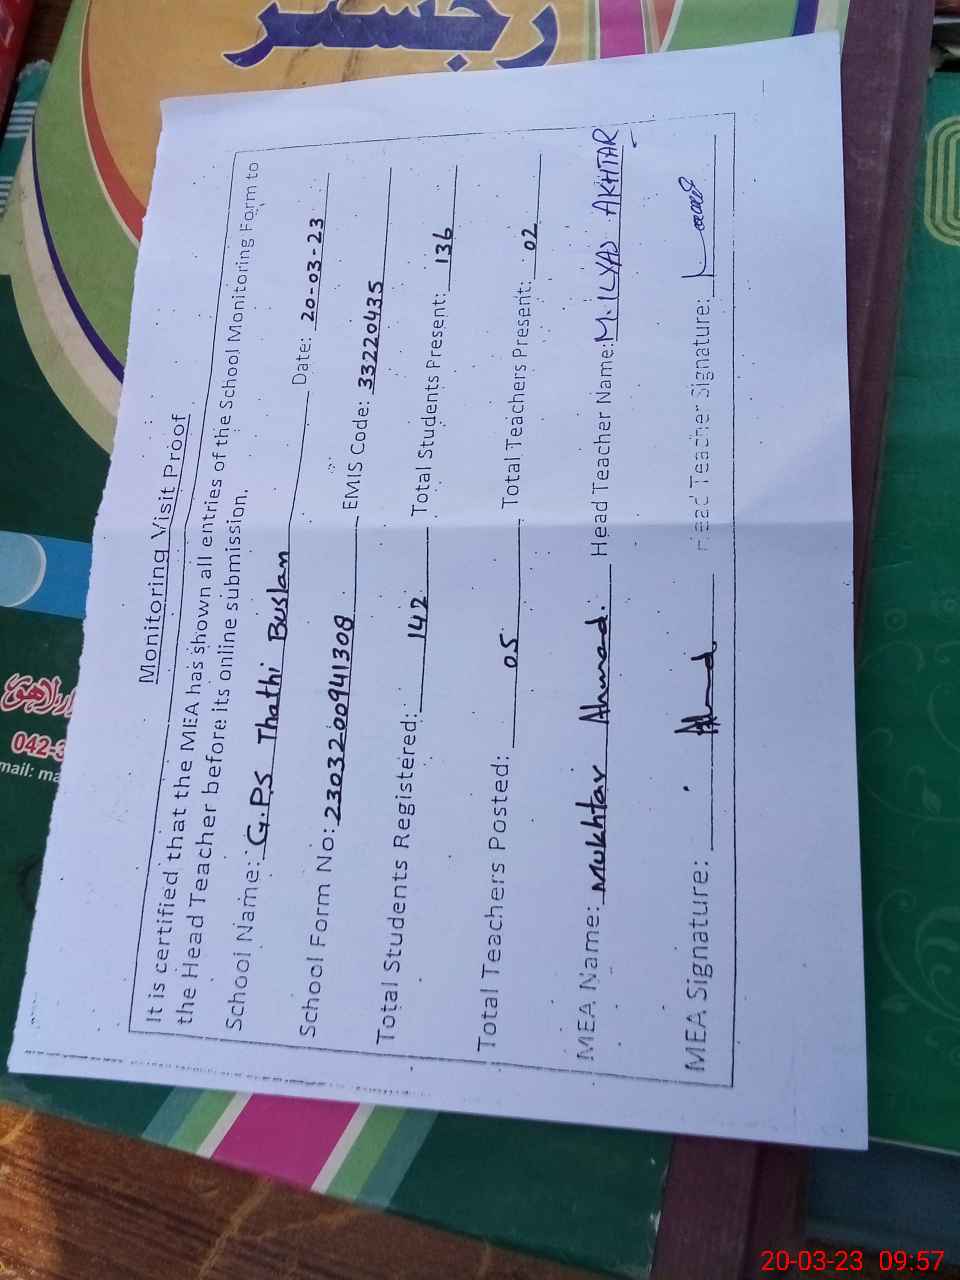 رجسٹر
Monitoring Visit Proof
It is certified that the MEA has shown all entries of the School Monitoring Form to
the Head Teacher before its online submission.
School Name: G.P.S Thathi Buslan Date: 20-03-23
School Form No: 2303200941308 EMIS Code: 33220435
Total Students Registered: 142 Total Students Present: 136
Total Teachers Posted: 05 Total Teachers Present: 02
MEA Name: Mukhtar Ahmad. Head Teacher Name: M. ILYAS AKHTAR
MEA Signature: Head Teacher Signature:
042-3
mail: ma
20-03-23 09:57